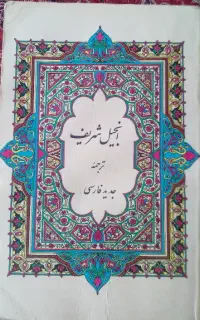 انجیل شریف
ترجمه
جدید فارسی